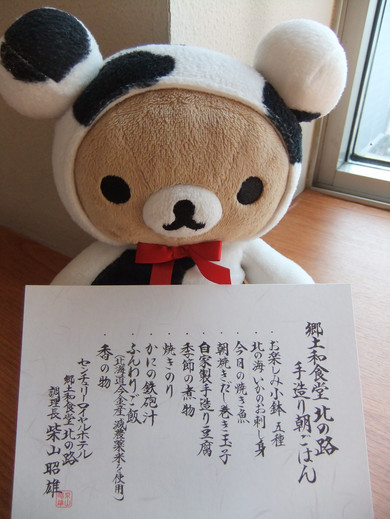 郷土和食堂 北の路
手造り朝ごはん
・お楽しみ小鉢 五種
・北の海 いかのお刺し身
・今日の焼き魚
・朝焼きだし巻き玉子
・自家製手造り豆腐
・季節の煮物
・焼きのり
・かにの鉄砲汁
・ふんわりご飯
(北海道今金産 減農薬米を使用)
・香の物
センチュリーロイヤルホテル
郷土和食堂 北の路
調理長 柴山昭雄